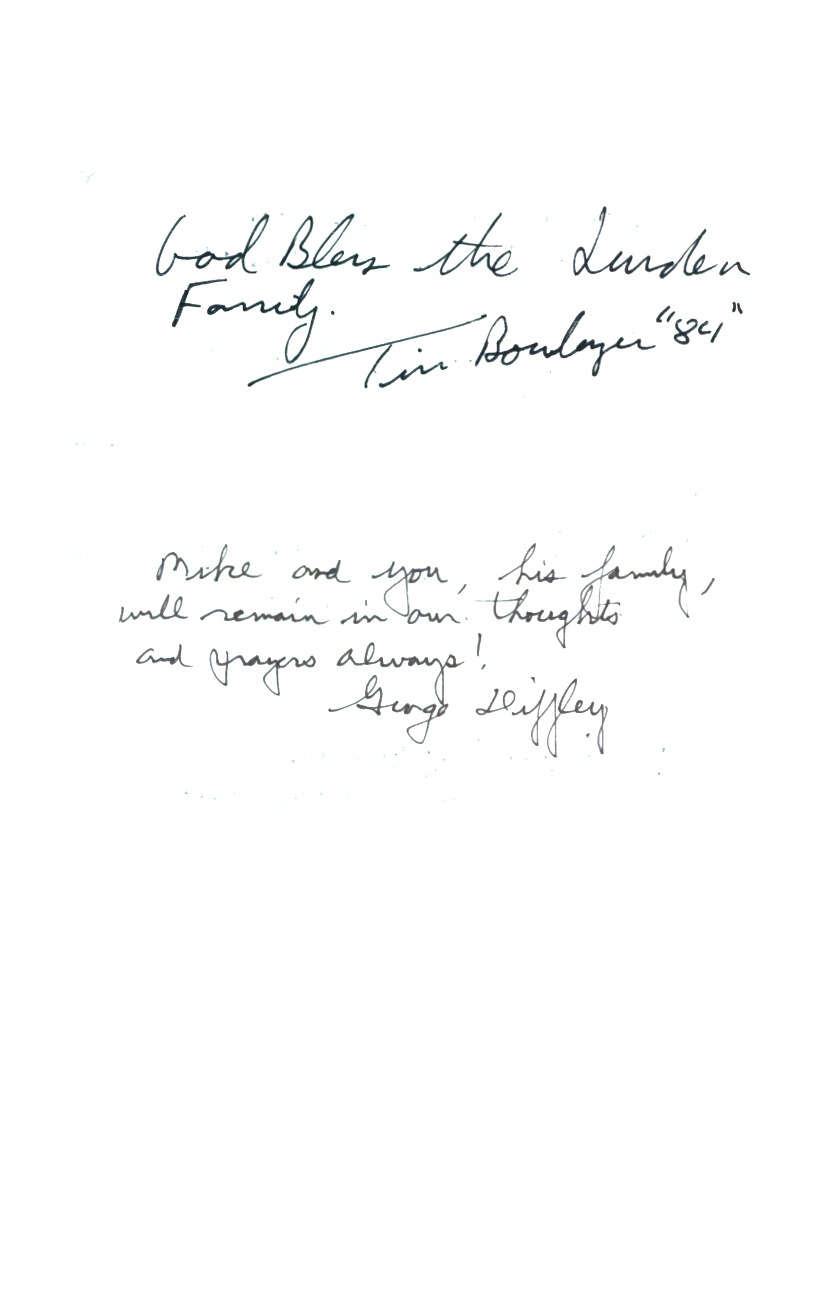 God Bless the Lunden
Family.
Tim Bowlager "84"
Mike and you, his family,
will remain in our thoughts
and prayers always!
George Diffley